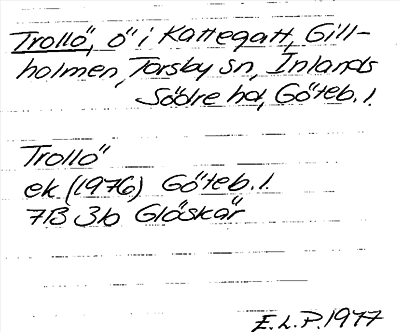 Trollö, ö i Kattegatt, Gill-
holmen, Torsby sn, Inlands
Södre hd, Göteb. l.
Trollö
ek. (1976) Göteb. l.
7B 3b Glöskär
E.L.P. 1977